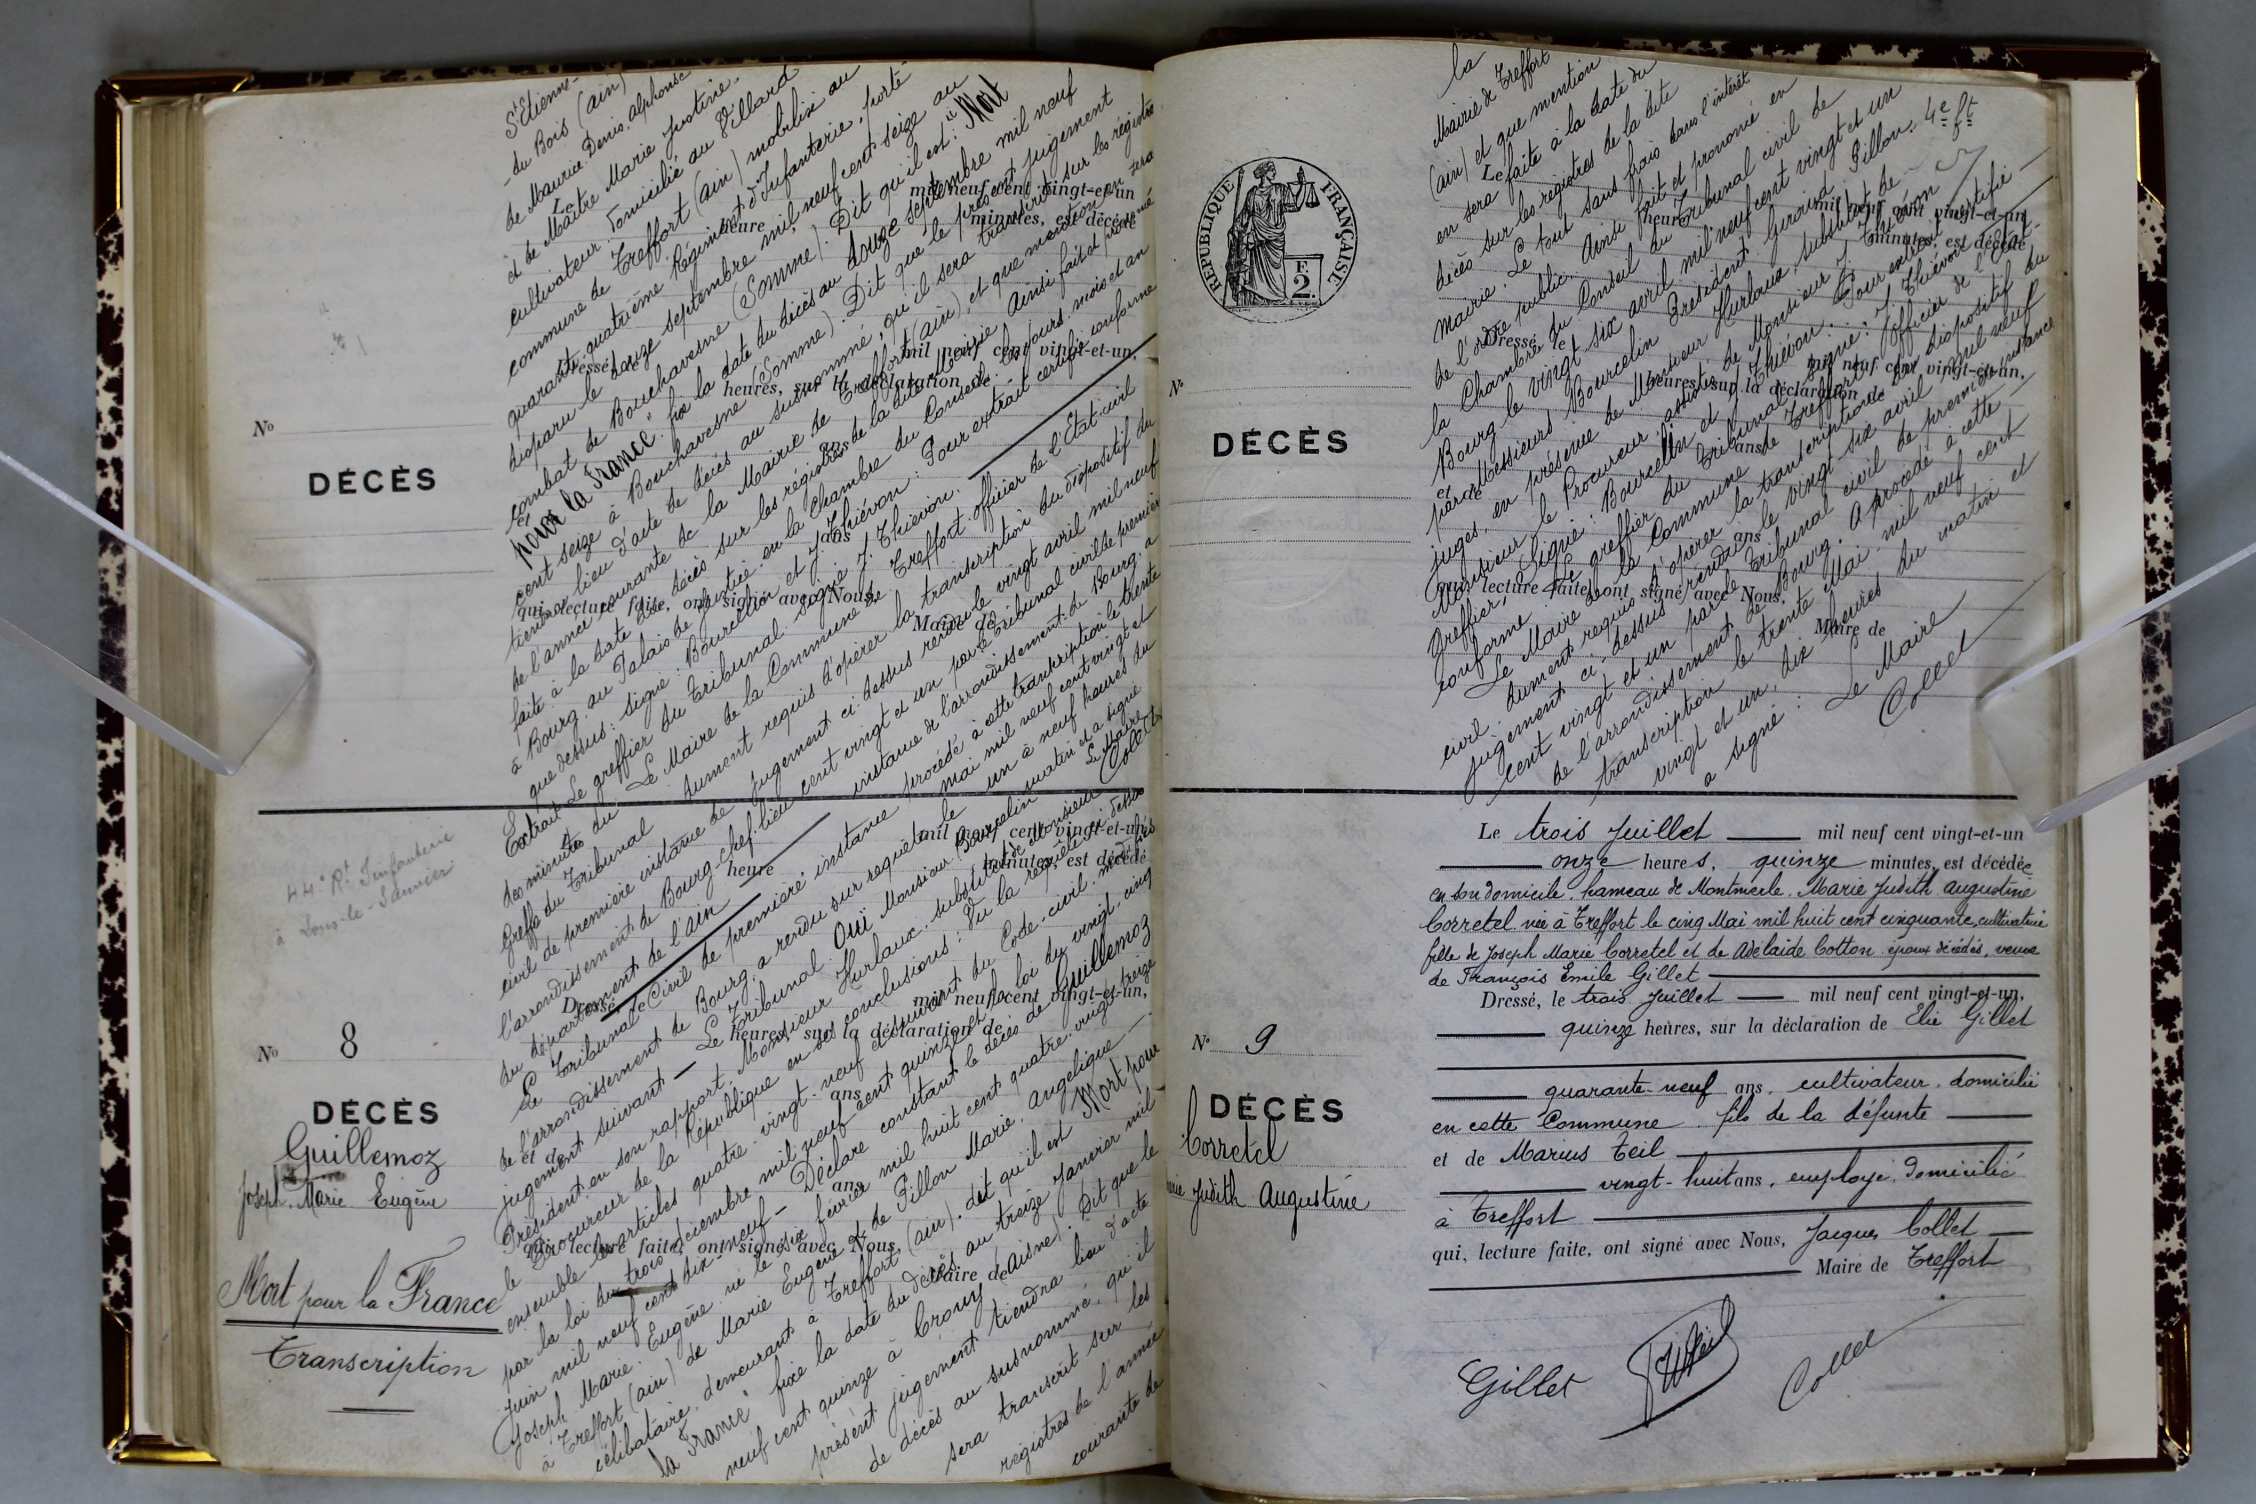 St Etienne-
du Bois (ain)
de Maurice Denis Alphonse
et de Maître Marie Justine.
Le
cultivateur domicilié au Villard
commune de Treffort (ain) mobilisé au
quarante quatrième Régiment d'Infanterie, porté
disparu le douze septembre mil neuf cent seize au
combat de Bouchavesne (Somme). Dit qu'il est "Mort
pour la France". fixe la date du décès au douze septembre mil neuf
cent seize à Bouchavesne (Somme). Dit que le présent jugement
tiendra lieu d'acte de décès au susnommé, qu'il sera transcrit sur les registres
de l'année courante de la Mairie de Treffort (ain), et que mention en sera
faite à la date du décès sur les registres de la dite Mairie Ainsi fait et prononcé
à Bourg au Palais de Justice en la Chambre du Conseil les jours, mois et an
que dessus: signé: Bourcelin et J. Thiévon: Pour extrait certifié conforme
Le greffier du Tribunal signé J. Thiévon.
Le Maire de la Commune de Treffort officier de l'Etat-civil
dument requis d'opérer la transcription du dispositif du
jugement ci-dessus rendu le vingt avril mil neuf
cent vingt et un par le Tribunal civil de premier
instance de l'arrondissement de Bourg, a
procédé à cette transcription le trente
mai mil neuf cent vingt et
un à neuf heures du
matin et a signé
Le Maire
Collet
heure
mil neuf cent vingt-et-un
minutes, est décédé
Dressé, le
mil neuf cent vingt-et-un,
heures, sur la déclaration de
No
DÉCÈS
ans
et de
ans
qui, lecture faite, ont signé avec Nous,
Maire de
44e Rt Infanterie
à Lons-le-Saunier
No 8
DÉCÈS
Guillemoz
Joseph Marie Eugène
Mort pour la France
Transcription
Extrait
des minutes du
Greffe du Tribunal
civil de première instance de
l'arrondissement de Bourg chef-lieu
du département de l'ain
Le Tribunal Civil de première instance
de l'arrondissement de Bourg, a rendu sur requête le
jugement suivant — Le Tribunal. Ouï Monsieur Bourcelin
Président en son rapport, Monsieur Hurlaux, substitut de Monsieur
le Procureur de la République en ses conclusions: Vu la requête ci-dessus
ensemble les articles quatre-vingt-neuf et suivant du Code civil, modifiés
par la loi du trois décembre mil neuf cent quinze et la loi du vingt-cinq
juin mil neuf cent dix-neuf — Déclare constant le décès de Guillemoz
Joseph Marie Eugène né le six février mil huit cent quatre-vingt treize
à Treffort (ain) de Marie Eugène et de Pillon Marie Angélique —
célibataire, demeurant à Treffort (ain). dit qu'il est Mort pour
la France" fixe la date du décès au treize Janvier mil
neuf cent quinze à Crouy (aisne). Dit que le
présent jugement tiendra lieu d'acte
de décès au susnommé, qu'il
sera transcrit sur les
registres de l'année
courante de
mil neuf cent vingt-et-un
heure
minutes, est décédé
Dressé, le
mil neuf cent vingt-et-un,
heures, sur la déclaration de
ans
et de
ans
qui, lecture faite, ont signé avec Nous,
Maire de
RÉPUBLIQUE FRANÇAISE
F.
2.
No
DÉCÈS
la
Mairie de Treffort
(ain) et que mention
en sera faite à la date du
décès sur les registres de la dite
mairie. Le tout sans frais dans l'intérêt
de l'ordre public. Ainsi fait et prononcé en
la Chambre du Conseil du Tribunal civil de
Bourg le vingt six avril mil neuf cent vingt et un
par Messieurs Bourcelin Président, Pillon. 4e ft
juges, en présence de Monsieur Hurlaux, substitut de
Monsieur le Procureur, assistés de Monsieur J. Thiévon
greffier. Signé: Bourcelin et J. Thiévon. Pour extrait certifié —
conforme. Le greffier du Tribunal, signé: J. Thiévon
Le Maire de la Commune de Treffort, officier de l'Etat-
civil, dument requis d'opérer la transcription du dispositif du
jugement ci-dessus rendu le vingt six avril mil neuf
cent vingt et un par le Tribunal civil de première instance
de l'arrondissement de Bourg. a procédé à cette —
transcription le trente Mai mil neuf cent
vingt et un, dix heures du matin et
a signé: Le Maire
Collet
Le
heure
mil neuf cent vingt-et-un
minutes, est décédé
Dressé, le
mil neuf cent vingt-et-un,
heures, sur la déclaration de
ans
et de
ans
qui, lecture faite, ont signé avec Nous,
Maire de
No 9
DÉCÈS
Corretel
Marie Judith Augustine
Le trois Juillet — mil neuf cent vingt-et-un
— onze heures, quinze minutes, est décédée
en son domicile, hameau de Montmerle, Marie Judith Augustine
Corretel née à Treffort le cinq Mai mil huit cent cinquante, cultivatrice
fille de Joseph Marie Corretel et de Adélaïde Cotton époux décédés, veuve
de François Emile Gillet —
Dressé, le trois Juillet — mil neuf cent vingt-et-un,
— quinze heures, sur la déclaration de Elie Gillet
— quarante-neuf ans, cultivateur, domicilié
en cette Commune fils de la défunte —
et de Marius Teil —
— vingt-huit ans, employé, domicilié
à Treffort —
qui, lecture faite, ont signé avec Nous, Jacques Collet —
— Maire de Treffort
Gillet
Teil
Collet